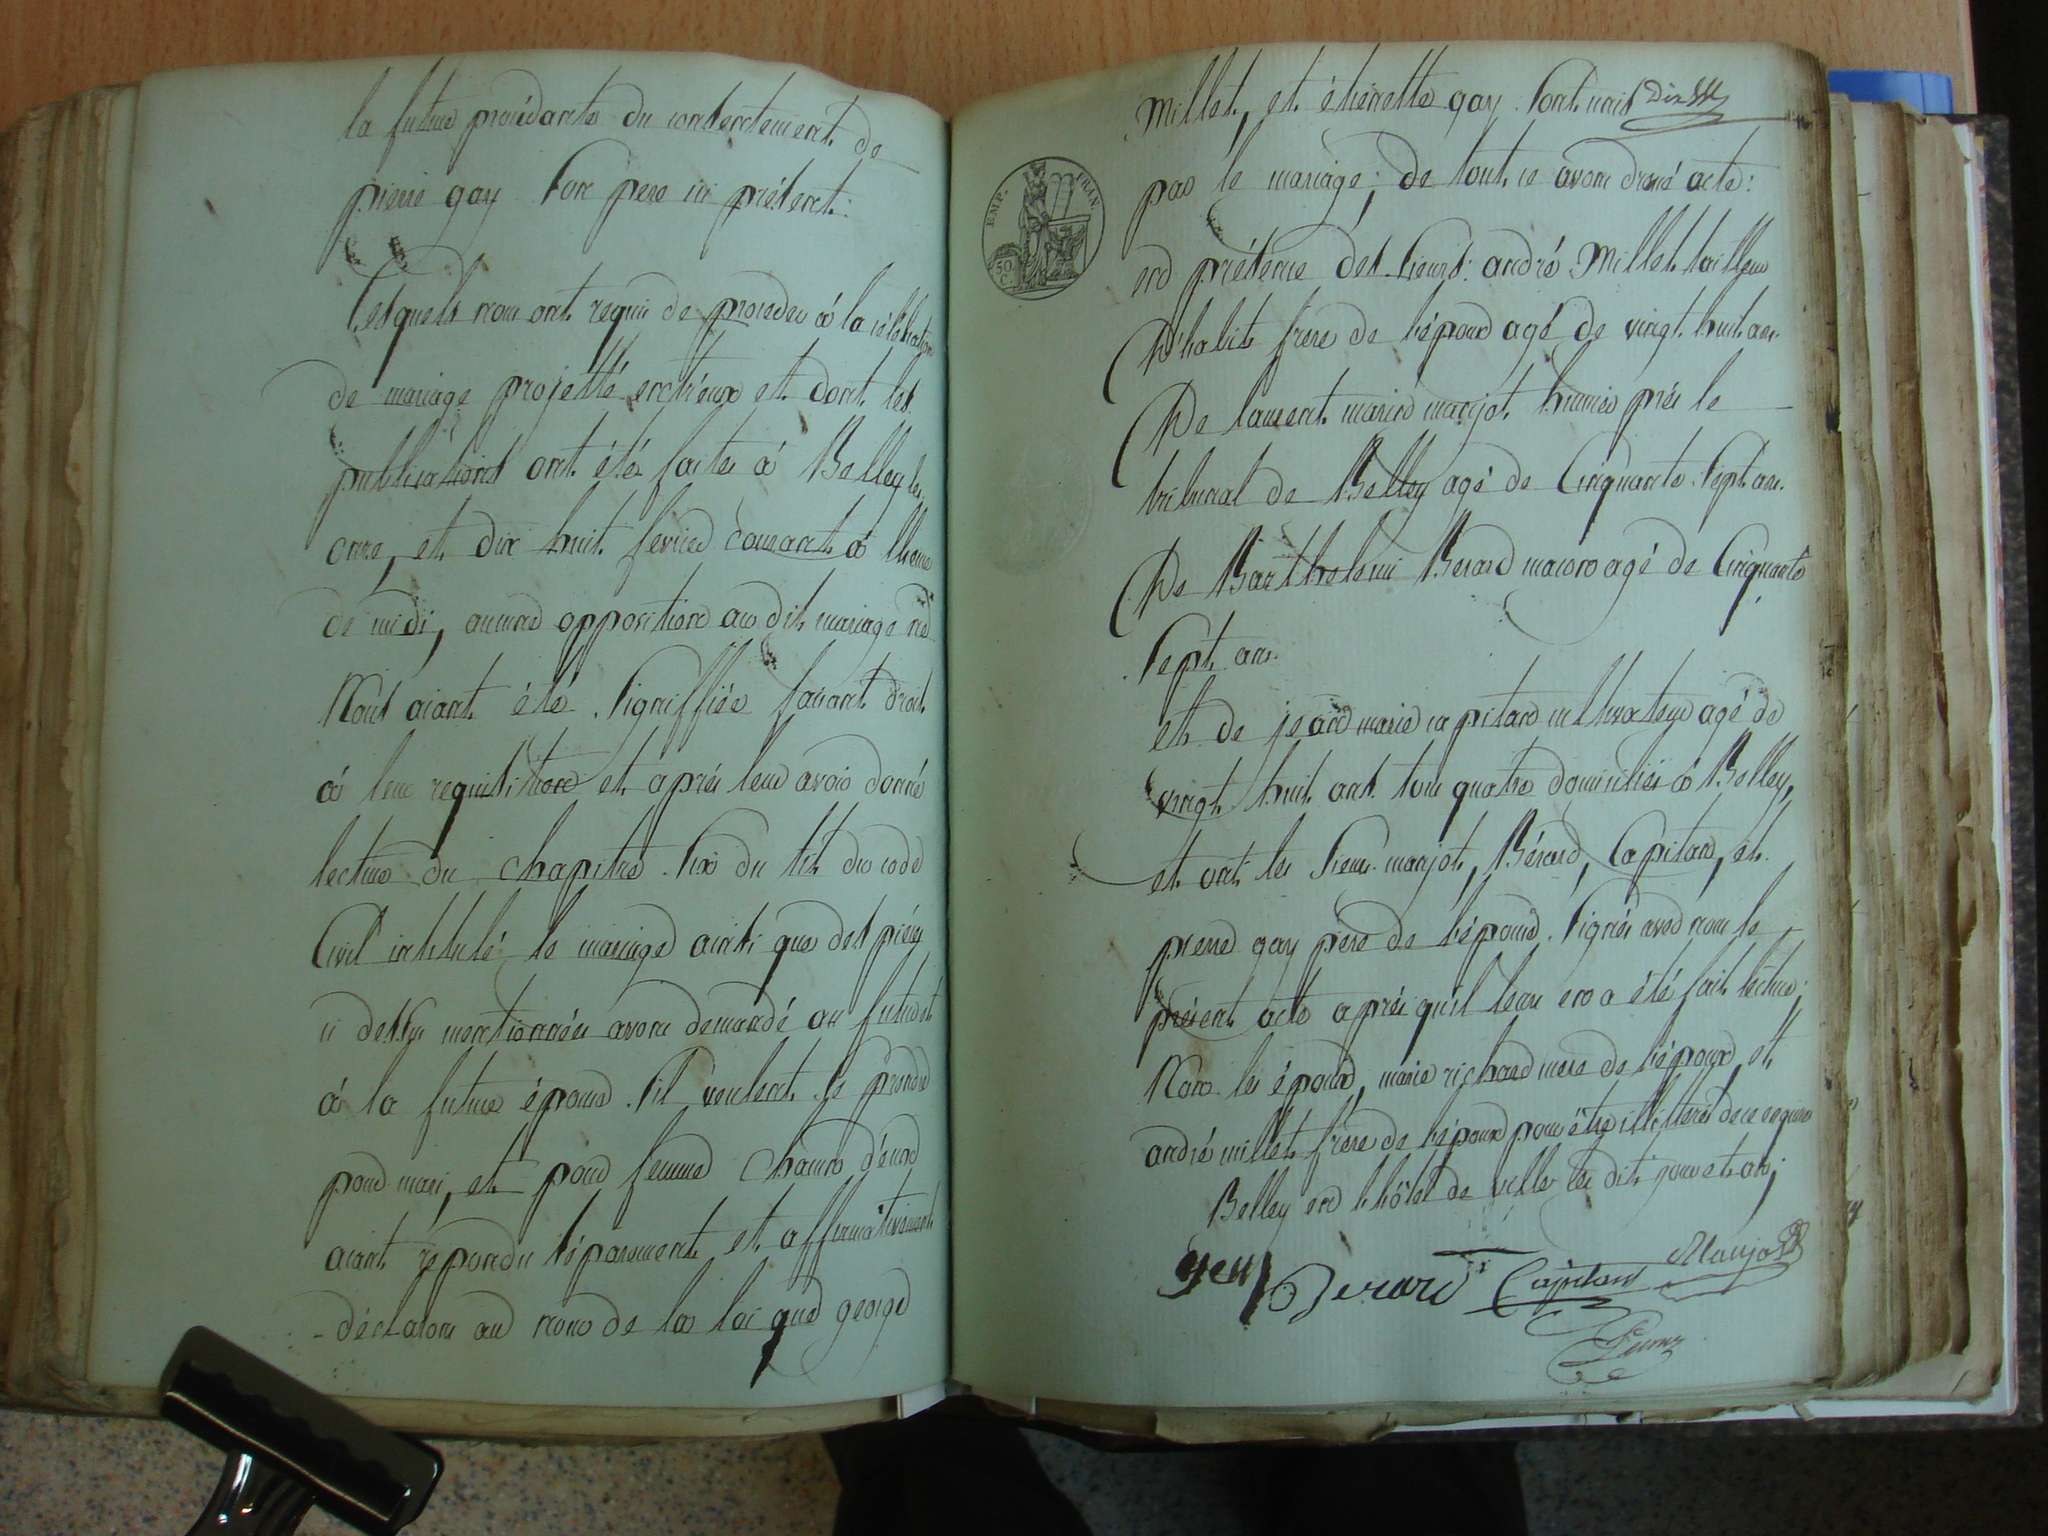 la future procédante du consentement de
pierre gay son pere ici présent:
Lesquels nous ont requis de proceder à la célébration
de mariage projetté entreux et dont les
publications ont été faites à Belley les
onze, et dix huit fevrier courant à lheure
de midi, aucune opposition au dit mariage ne
Nous aiant été signiffiée faisant droit
à leur requisition et après leur avoir donné
lecture du chapitre six du tit. du code
Civil intitulé le mariage ainsi que des pièces
ci dessus mentionnées avons demandé au futur et
à la future épouse s'il veulent se prendre
pour mari, et pour femme chacun d'eux
aiant repondu séparement et affirmativement
- déclarons au nom de la loi que george
Millet, et étienette gay sont unis Dix
par le mariage; de tout ce avons dressé acte:
en présence des sieurs: andré Millet tailleur
D'habits frere de l'époux agé de vingt huit ans.
De laurent marin marjot huissier près le
tribunal de Belley agé de Cinquante sept ans.
De Barthelemi Berard macon agé de Cinquante
sept ans.
et de jean marie capitan cultivateur agé de
vingt huit ans tous quatre domiciliés à Belley,
et ont les sieurs marjot, Bérard, Capitan, et
pierre gay pere de l'épouse signés avec nous le
présent acte après qu'il leur en a été fait lecture;
Non les époux, marie richard mere de l'époux, et
andré millet frere de l'époux pour être illitteres de ce enquis
Belley en l'hôtel de ville les dits jour et an;
EMP. FRAN.
50 C.
gay Berard Capitan Marjot